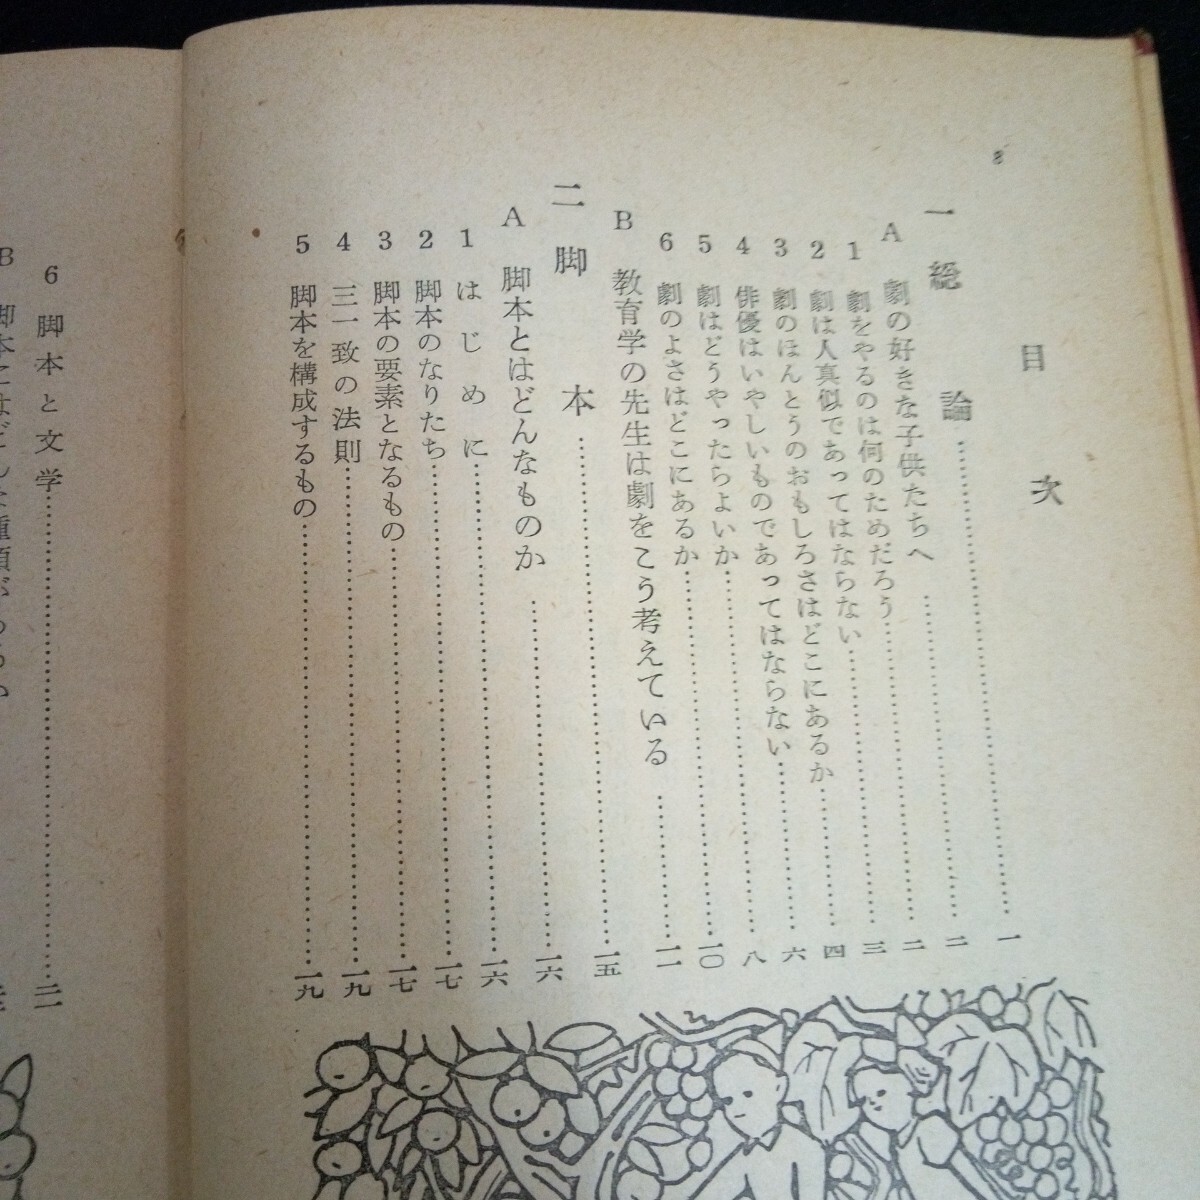 8
目次
一 総論……一
A 劇の好きな子供たちへ……二
1 劇をやるのは何のためだろう……二
2 劇は人真似であってはならない……三
3 劇のほんとうのおもしろさはどこにあるか……四
4 俳優はいやしいものであってはならない……六
5 劇はどうやったらよいか……八
6 劇のよさはどこにあるか……一〇
B 教育学の先生は劇をこう考えている……一一
二 脚本……一五
A 脚本とはどんなものか……一六
1 はじめに……一六
2 脚本のなりたち……一七
3 脚本の要素となるもの……一七
4 三一致の法則……一九
5 脚本を構成するもの……一九
6 脚本と文学……二一
B 脚本にはどんな種類があるか